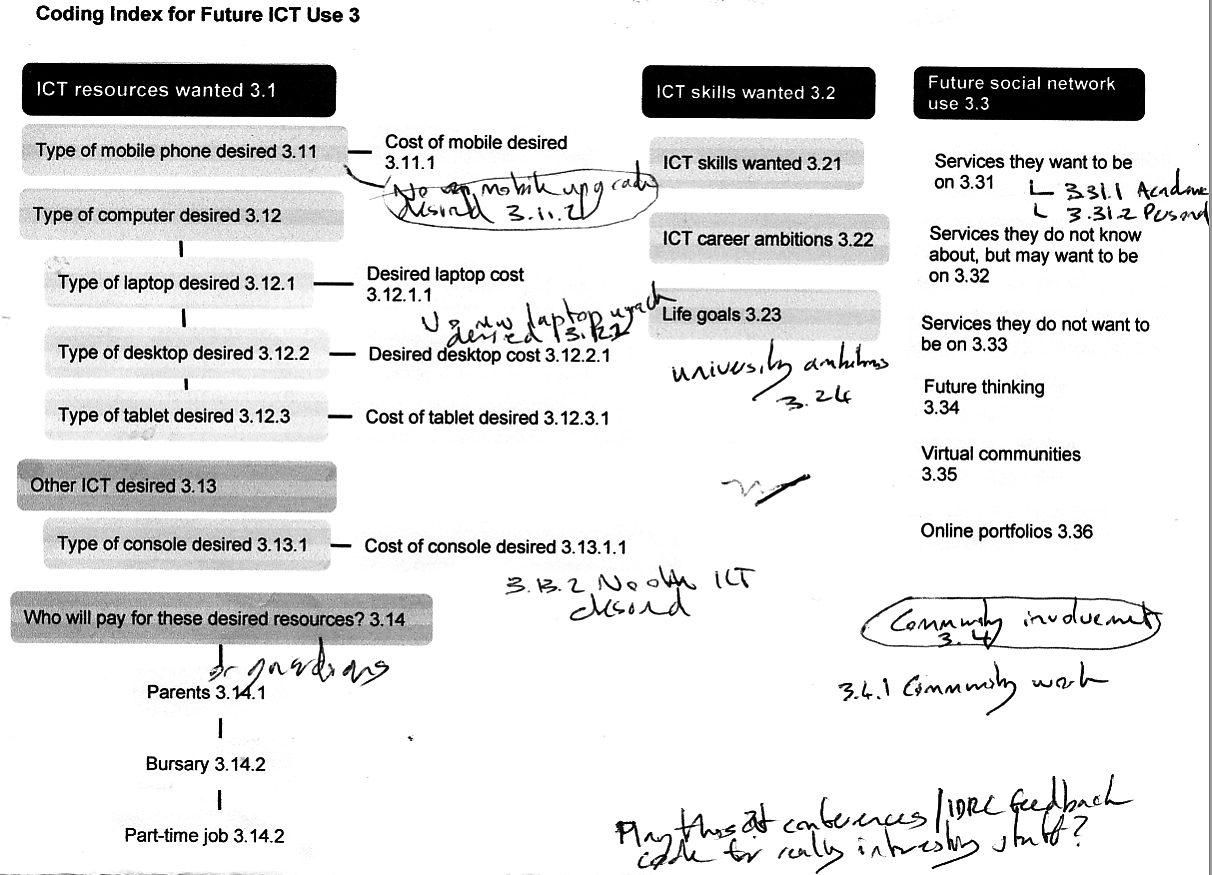 Coding Index for Future ICT Use 3
ICT resources wanted 3.1
Type of mobile phone desired 3.11
Cost of mobile desired
3.11.1
No mobile upgrade
desired 3.11.2
Type of computer desired 3.12
Type of laptop desired 3.12.1
Desired laptop cost
3.12.1.1
new laptop
desired
Type of desktop desired 3.12.2
Desired desktop cost 3.12.2.1
Type of tablet desired 3.12.3
Cost of tablet desired 3.12.3.1
Other ICT desired 3.13
Type of console desired 3.13.1
Cost of console desired 3.13.1.1
3.13.2 No other ICT
desired
Who will pay for these desired resources? 3.14
or guardians
Parents 3.14.1
Bursary 3.14.2
Part-time job 3.14.2
ICT skills wanted 3.2
ICT skills wanted 3.21
ICT career ambitions 3.22
Life goals 3.23
university ambitions
3.24
Future social network
use 3.3
Services they want to be
on 3.31
3.31.1 Academic
3.31.2 Personal
Services they do not know
about, but may want to be
on 3.32
Services they do not want to
be on 3.33
Future thinking
3.34
Virtual communities
3.35
Online portfolios 3.36
Community involvement
3.4
3.4.1 Community work
this at conferences / IDRC feedback
code for really interesting stuff?